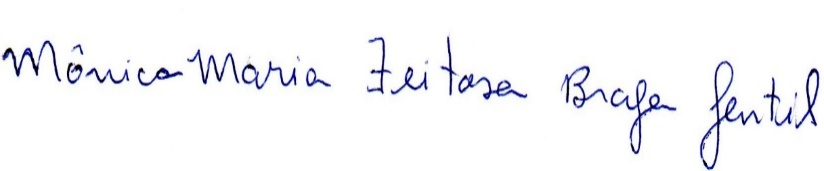 Mônica Maria Feitosa Braga Gentil